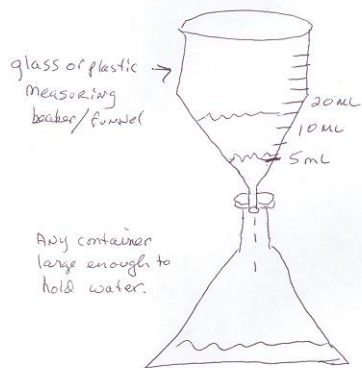 glass or plastic
measuring
beaker/funnel
20 ML
10 ML
5 mL
Any container
large enough to
hold water.